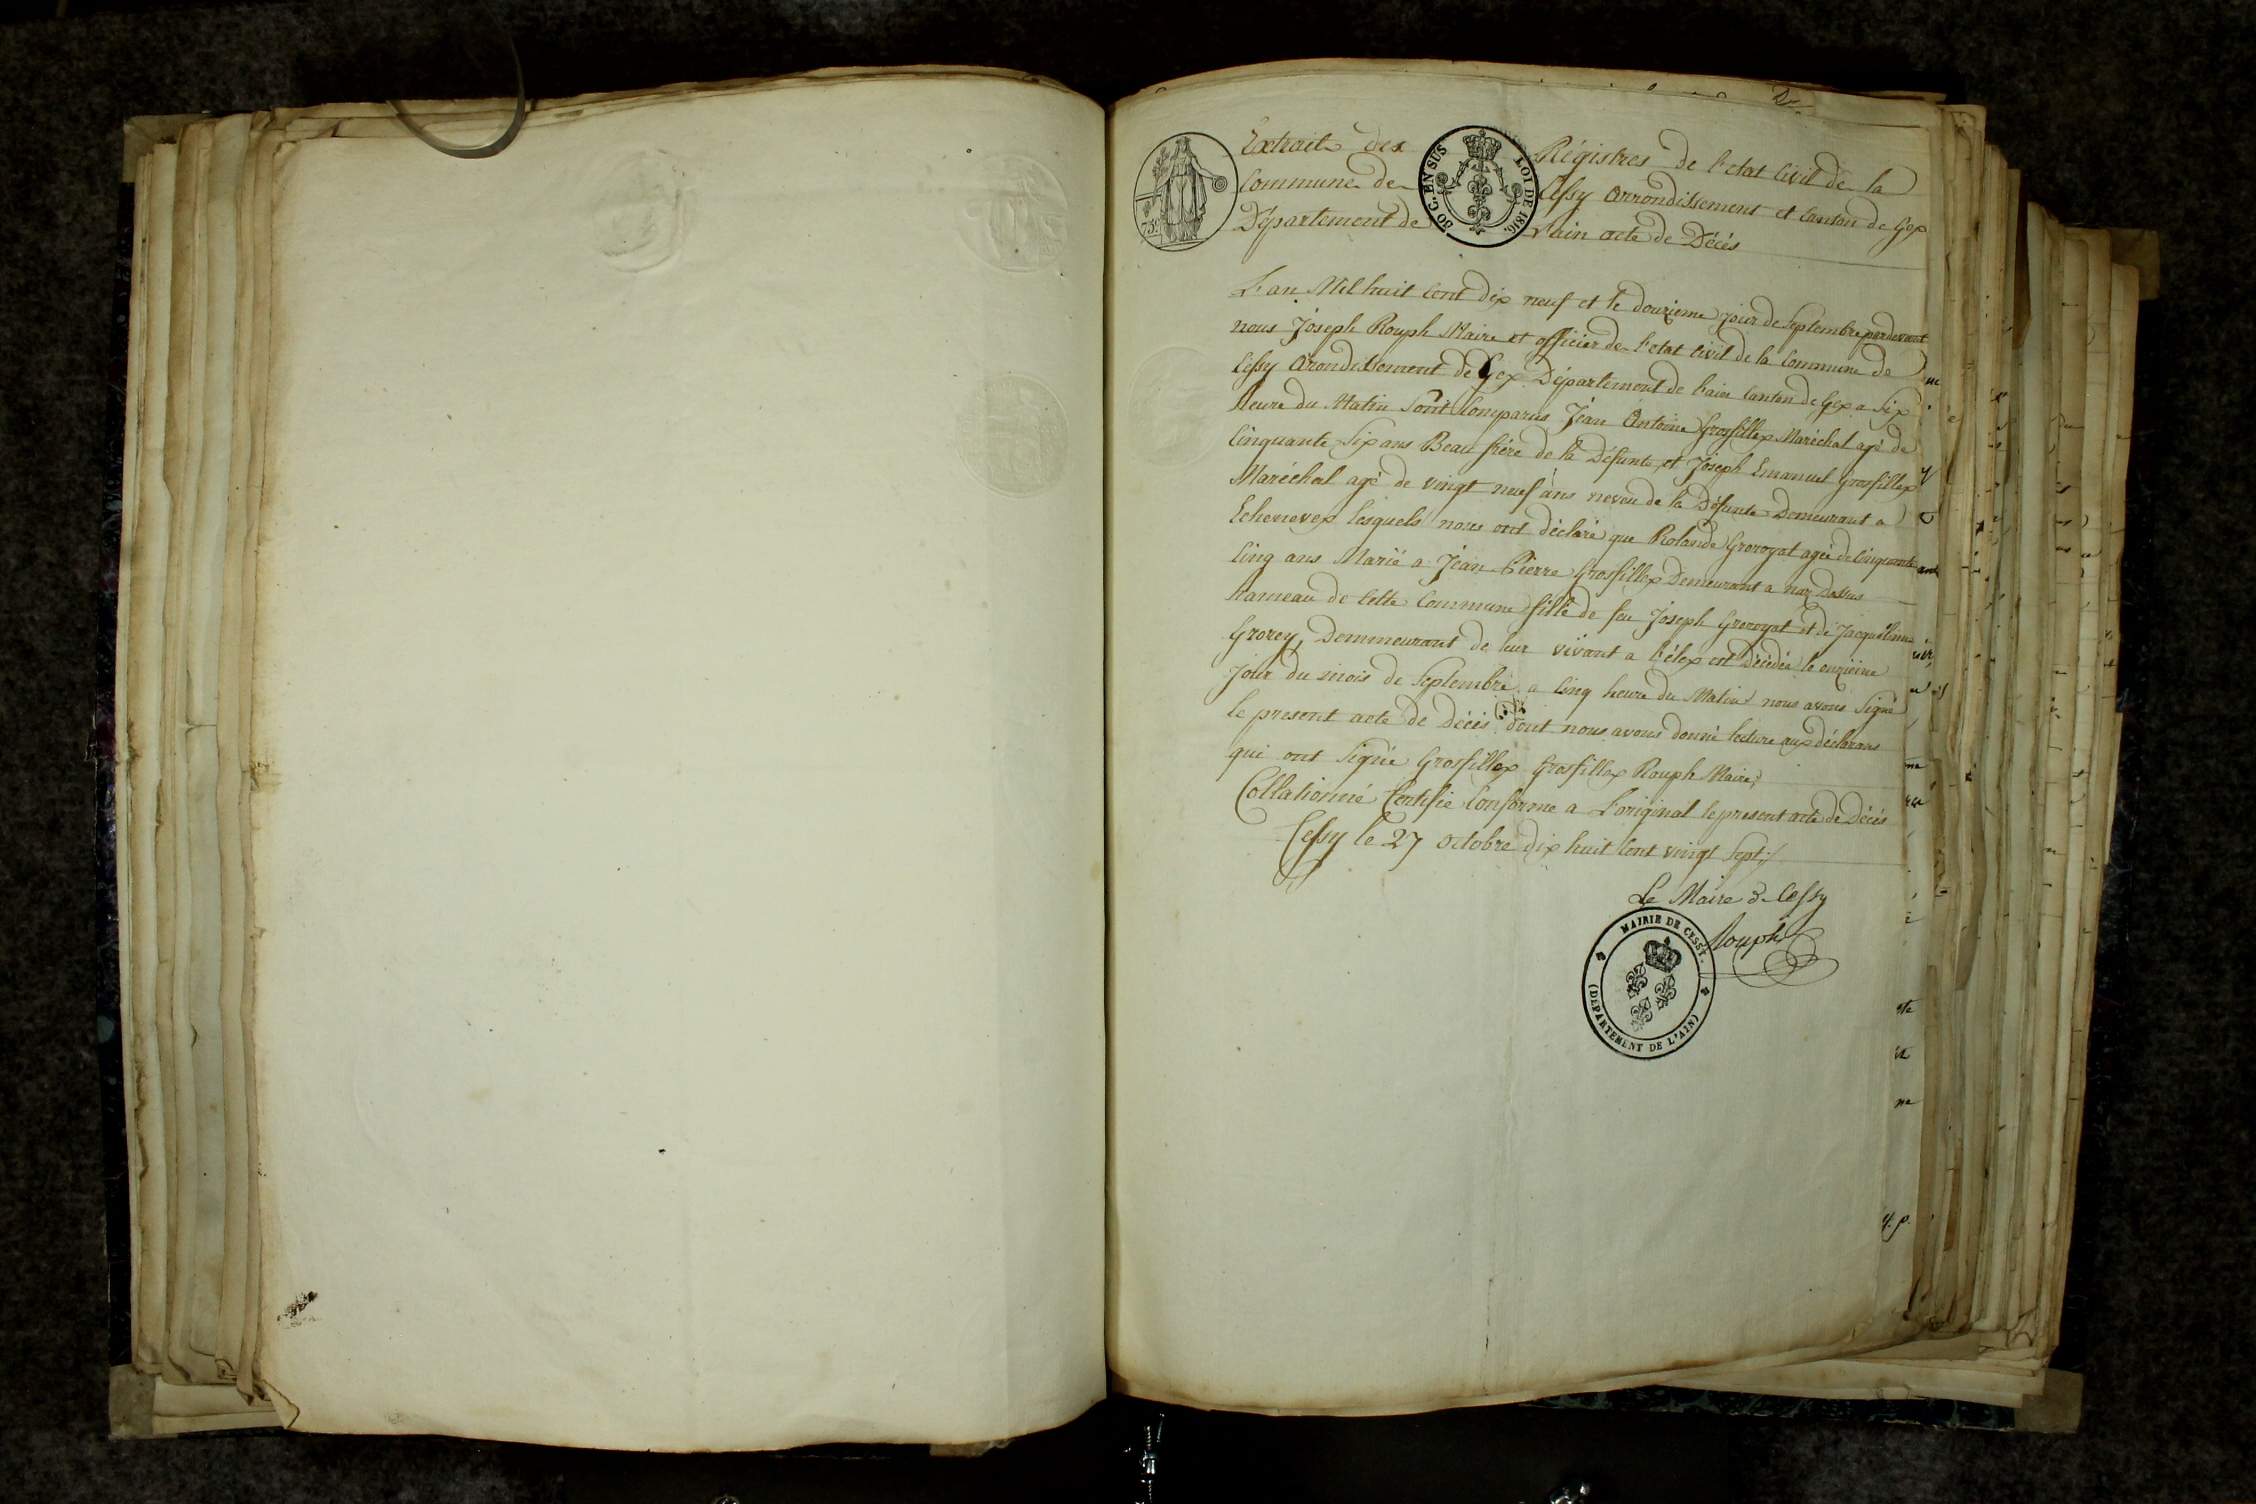 Extrait des Régistres de l'etat Civil de la
Commune de Cessy Arrondissement et Canton de Gex
Département de l'ain acte de Décés
75c
80 C. EN SUS LOI DE 1816.
L'an Mil huit Cent dix neuf et le douzieme jour de Septembre pardevant
nous Joseph Rouph Maire et officier de l'etat Civil de la Commune de
Cessy Arondissement de Gex Département de l'ain Canton de Gex a Six
heure du Matin Sont Comparus Jean Antoine Grosfillex Maréchal agé de
Cinquante Six ans Beau frére de la Défunte et Joseph Emanuel Grosfillex
Maréchal agé de vingt neuf ans neveu de la Défunte Demeurant a
Echenevex lesquels nous ont déclaré que Rolande Grorogat agée de Cinquante
Cinq ans Marié a Jean Pierre Grosfillex Demeurant a naz Dessus
hameau de Cette Commune fille de feu Joseph Grorogat et de Jacqueline
Grorey, Demmeurant de leur vivant a Lélex est Décédée le onzieme
jour du mois de Septembre a Cinq heure du Matin nous avons Signé
le present acte de décés dont nous avons donné lecture aux déclarans
qui ont Signé Grosfillex Grosfillex Rouph Maire,
Collationné Certifié Conforme a L'original le present acte de Décés
Cessy le 27 octobre dix huit Cent vingt Sept
Le Maire de Cessy
Rouph
MAIRIE DE CESSY.
(DÉPARTEMENT DE L'AIN)